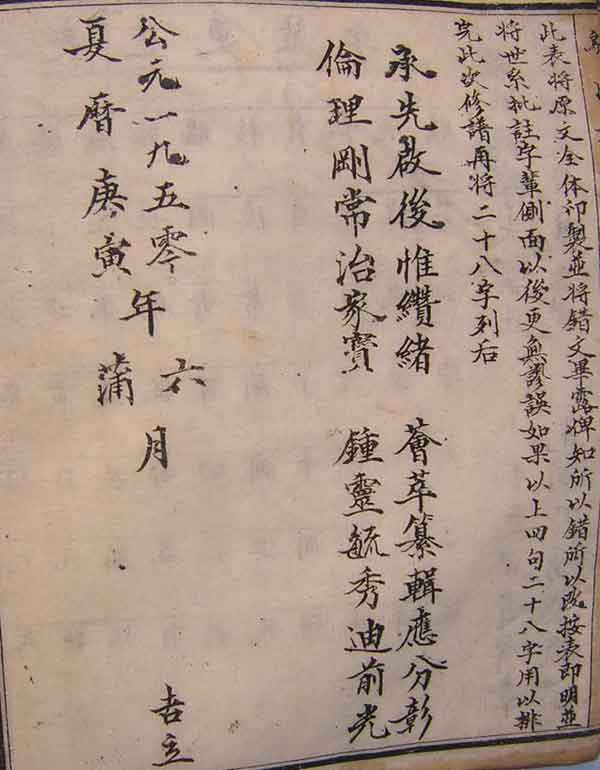 此表将原文全体印製並将錯文畢露俾知所以錯所以改按表即明並
将世系批註字輩側面以後更無謬誤如果以上四句二十八字用以排
完此次修譜再将二十八字列后
承先啟後惟纘緒 薈萃纂輯應分彰
倫理剛常治家寳 鍾靈毓秀迪前光
公元一九五零年六月
夏曆庚寅 蒲 吉立